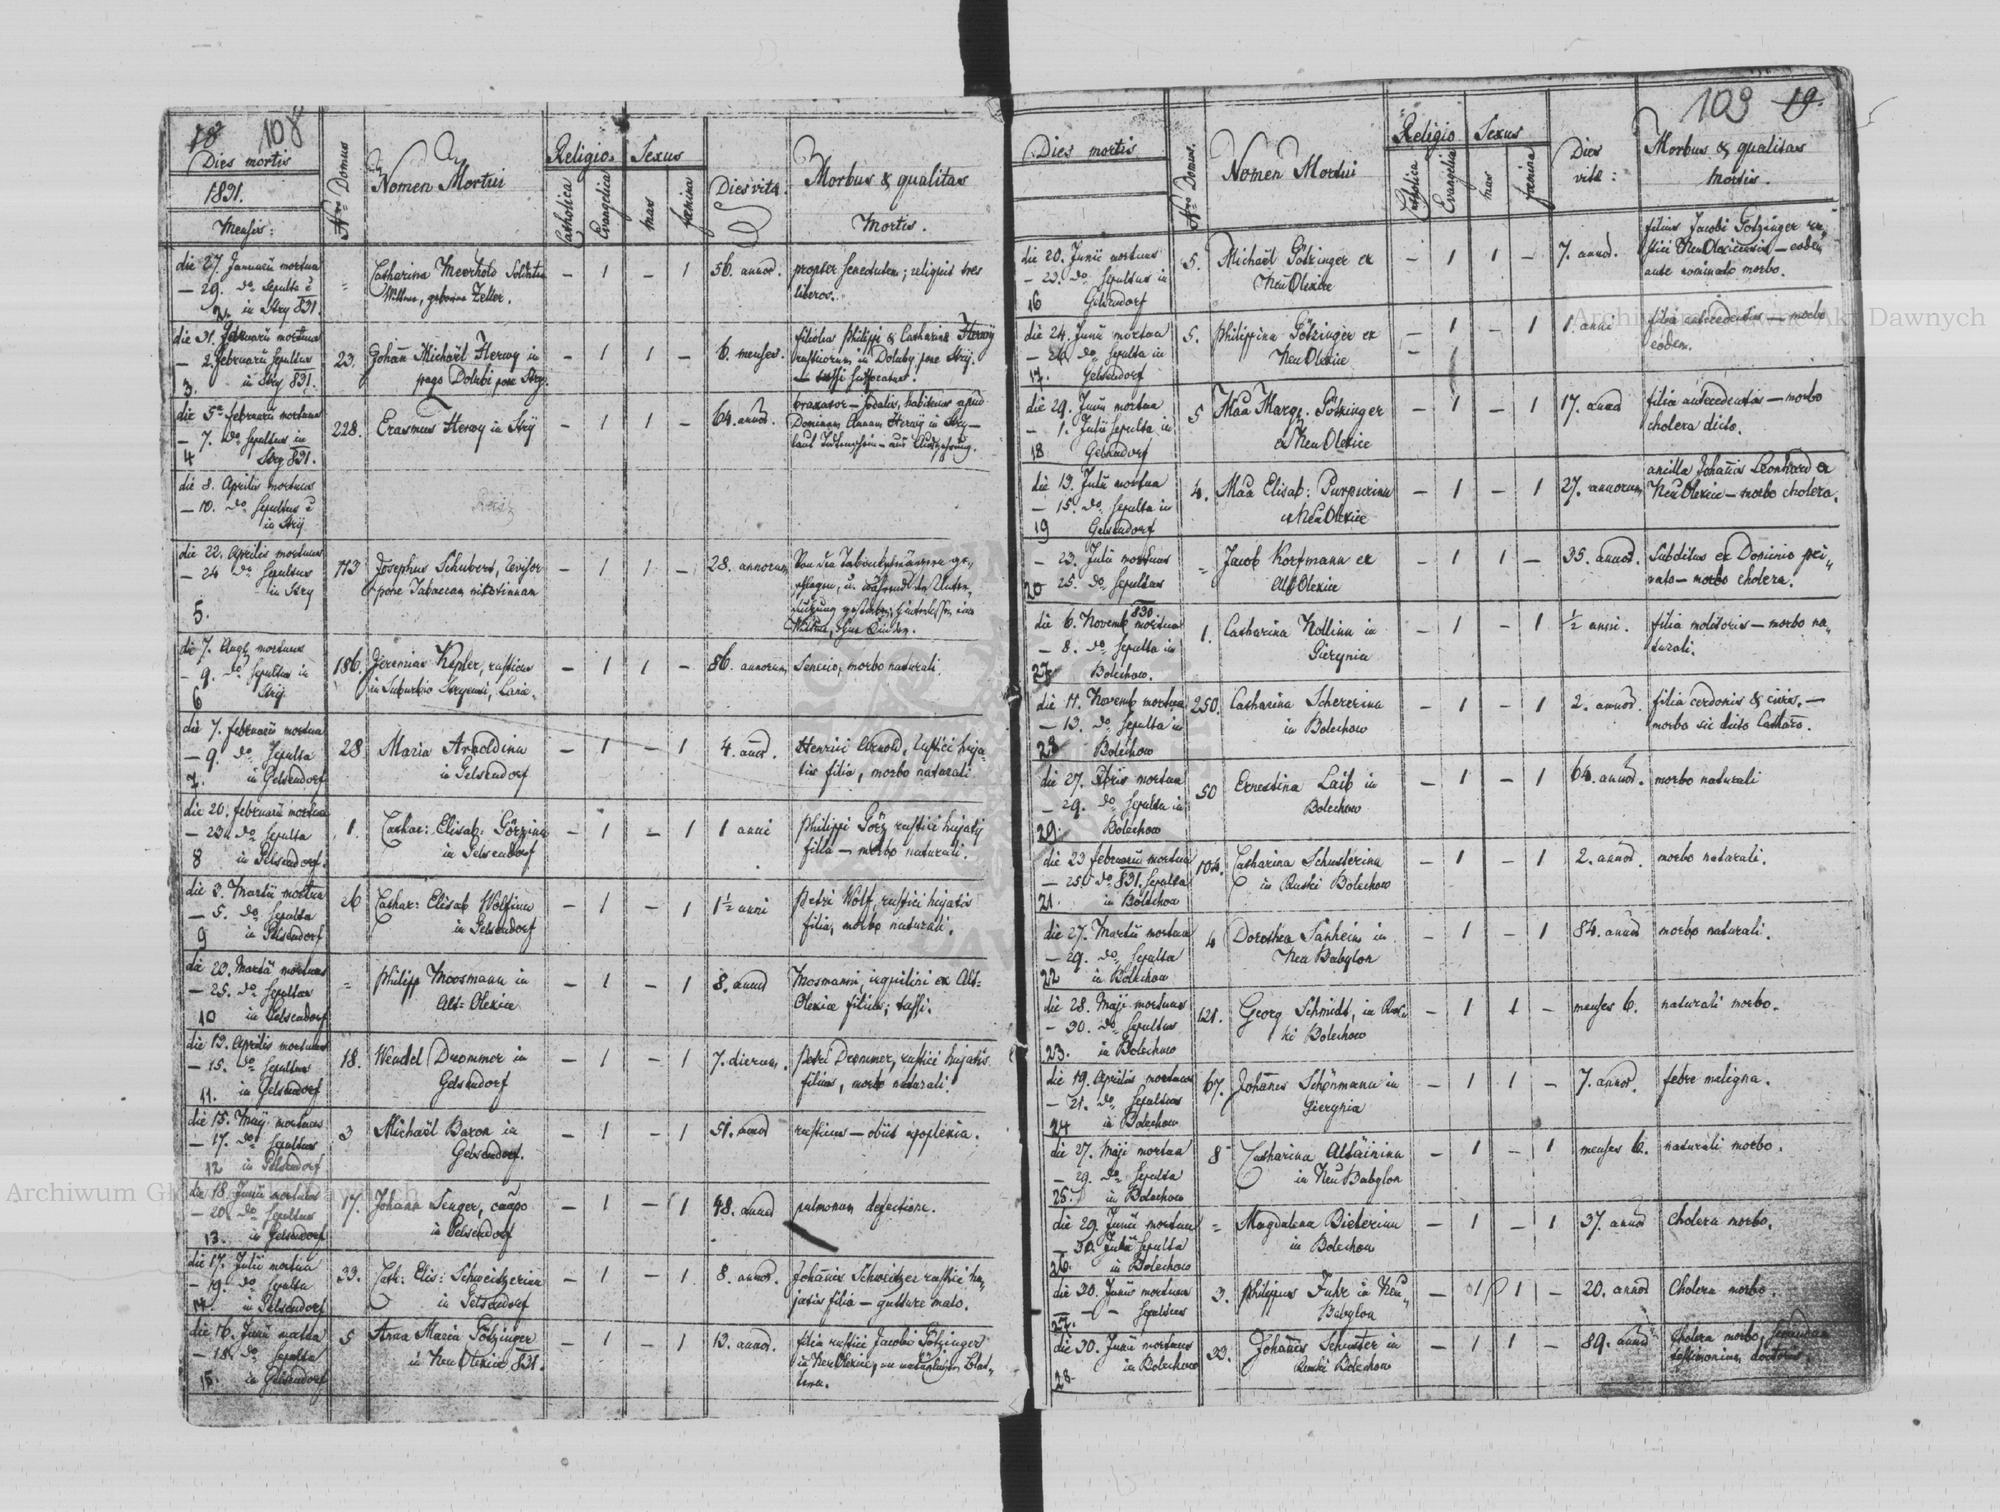 18 108
Dies mortis
1831.
Mensis:
Nro Domus
Nomen Mortui
Religio. Sexus
Catholica
Evangelica
mas
fœmina
Dies vitæ.
Morbus & qualitas
Mortis.
die 27. Januarii mortua
— 29. do sepulta
2. in Stry 831.
Catharina Meerhold Soldaten
Wittwe, geborne Zeller.
— 1 — 1
56. annor.
propter senectutem; reliquit tres
liberos.
die 31. mortuus
— 2. Februarii sepultus
3. in Stry 831.
23.
Johann Michaël Herwy in
pago Dolubi pone Stry.
— 1 1 —
6. menses.
filiolus Philippi & Catharinæ Herwy
rusticorum in Doluby pone Stry.
— tussi suffocatus.
die 5ta februarii mortuus
— 7. do sepultus in
4 Stry 831.
228.
Erasmus Herwy in Stry
— 1 1 —
64. annor.
braxator — sodalis, habitans apud
Dominam Annam Herwy in Stry —
die 8. Aprilis mortuus
— 10. do sepultus
in Stry
die 22. Aprilis mortuus
— 24 do sepultus
in Stry
5.
113
Josephus Schubert, revisor
pone Tabacam nikotinnam
— 1 1 —
28. annorum
die 7. Augt mortuus
— 9. do sepultus in
6 Stry
186.
Jeremias Kepler, rusticus
in Suburbio Stryensi,
— 1 1 —
86. annorum
Senecio, morbo naturali.
die 7. februarii mortua
— 9. do sepulta
7. in Gelsendorf
28
Maria Arnoldinn
in Gelsendorf
— 1 — 1
4. annor.
Henrici Arnold, rustici huja-
tis filia, morbo naturali
die 20. februarii mortua
— 23 do sepulta
8 in Gelsendorf.
1.
Cathar: Elisab: Görzinn
in Gelsendorf
— 1 — 1
1 anni
Philippi Görz rustici hujatis
filia — morbo naturali.
die 3. Martii mortua
— 5. do sepulta
9 in Gelsendorf
26
Cathar: Elisab Wolfinn
in Gelsendorf
— 1 — 1
1½ anni
Petri Wolf, rustici hujatis
filia, morbo naturali.
die 20. Martii mortuus
— 25. do sepultus
10 in Gelsendorf
=
Philipp Moosmann in
Alt: Olexice
— 1 — 1
8. annor
Mosmanni, inquilini ex Alt-
Olexice filius; tussi.
die 13. Aprilis mortuus
— 15. do sepultus
11. in Gelsendorf
18.
Wendel Drommer in
Gelsendorf
— 1 — 1
7. dierum.
Petri Drommer, rustici hujatis
filius, morbo naturali.
die 15. Maij mortuus
— 17. do sepultus
12 in Gelsendorf
3
Michaël Baron in
Gelsendorf.
— 1 — 1
51. annor
rusticus — obiit apoplexia.
die 18. Junii mortuus
— 20. do sepultus
13. in Gelsendorf
17.
Johann Senger, caupo
in Gelsendorf
— 1 — 1
48. annor
pulmonum defectione.
die 17. Julii mortua
— 19. do sepulta
14. in Gelsendorf
33.
Cath: Elis: Schweitzerinn
in Gelsendorf
— 1 — 1
8. annor.
Johannis Schweitzer rustici hu-
jatis filia — gutture malo.
die 16. Junii mortua
— 18. do sepulta
15. in Gelsendorf
5
Anna Maria Götzinger
in Neu Olexice 831.
— 1 — 1
13. annor.
filia rustici Jacobi Götzinger
in Neu Olexice,
103 19.
Dies mortis
Nro Domus.
Nomen Mortui
Religio Sexus
Catholica
Evangelica
mas
fœmina
Dies
vitæ:
Morbus & qualitas
Mortis.
die 20. Junii mortuus
— 22. do sepultus in
16 Gelsendorf
5.
Michaël Götzinger ex
Neu Olexice
— 1 1 —
7. annor.
filius Jacobi Götzinger ru-
stici Neu Olexicensis — eodem
ante nominato morbo.
die 24. Junii mortua
— 26. do sepulta in
17. Gelsendorf
5.
Philippina Götzinger ex
Neu Olexice
— 1 — 1
1 anni
filia antecedentis — morbo
eodem.
die 29. Junii mortua
— 1. Julii sepulta in
18 Gelsendorf
5
Maa Margr. Götzinger
ex Neu Olexice
— 1 — 1
17. annor
filia antecedentis — morbo
cholera dicto.
die 13. Julii mortua
— 15. do sepulta in
19 Gelsendorf
4.
Maa Elisab: Purpurinn
ex Neu Olexice
— 1 — 1
27. annorum
ancilla Johannis Leonhard ex
Neu Olexice — morbo cholera.
— 23. Julii mortuus
20 25. do sepultus
=
Jacob Kortmann ex
Alt Olexice
— 1 1 —
35. annor.
Subditus ex Dominio pri-
vato — morbo cholera.
die 6. Novemb. 830 mortua
— 8. do sepulta in
27 Bolechow.
1.
Catharina Kollinn in
Gierynia
— 1 — 1
½ anni.
filia molitoris — morbo na-
turali.
die 11. Novemb mortua
— 13. do sepulta in
28 Bolechow
250.
Catharina Schererinn
in Bolechow
— 1 — 1
2. annor.
filia cerdonis & civis. —
morbo sic dicto Catharro.
die 27. mortua
— 29. do sepulta in
29. Bolechow
50
Ernestina Laib in
Bolechow
— 1 — 1
64. annor.
morbo naturali
die 23 februarii mortua
— 25. do 831. sepulta
21. in Bolechow
104.
Catharina Schusterinn
in Ruski Bolechow
— 1 — 1
2. annor.
morbo naturali.
die 27. Martii mortua
— 29. do sepulta
22 in Bolechow
4
Dorothea Sanheim in
Neu Babylon
— 1 — 1
84. annor
morbo naturali.
die 28. Maji mortuus
— 30. do sepultus
23. in Bolechow
121.
Georg Schmidt, in Rus-
ki Bolechow
— 1 1 —
menses 6.
naturali morbo.
die 19. Aprilis mortuus
— 21. do sepultus
24 in Bolechow
67.
Johannes Schönmann in
Gierynia
— 1 1 —
7. annor.
febre maligna.
die 27. Maji mortua
— 29. do sepulta
25. in Bolechow
8
Catharina Altäininn
in Neu Babylon
— 1 — 1
menses 6.
naturali morbo.
die 29. Junii mortua
— 30. Junii sepulta
26. in Bolechow
=
Magdalena Bieterinn
in Bolechow
— 1 — 1
37. annor
cholera morbo.
die 30. Junii mortuus
— — — sepultus
27.
3.
Philippus Fuhr in Neu-
Babylon
— 1 1 —
20. annor
Cholera morbo.
die 30. Junii mortuus
in Bolechow
28
33.
Johannes Schuster in
Ruski Bolechow
— 1 1 —
89. annor
Cholera morbo, secundum
testimonium doctoris.
Archiwum Główne Akt Dawnych
Archiwum Główne Akt Dawnych